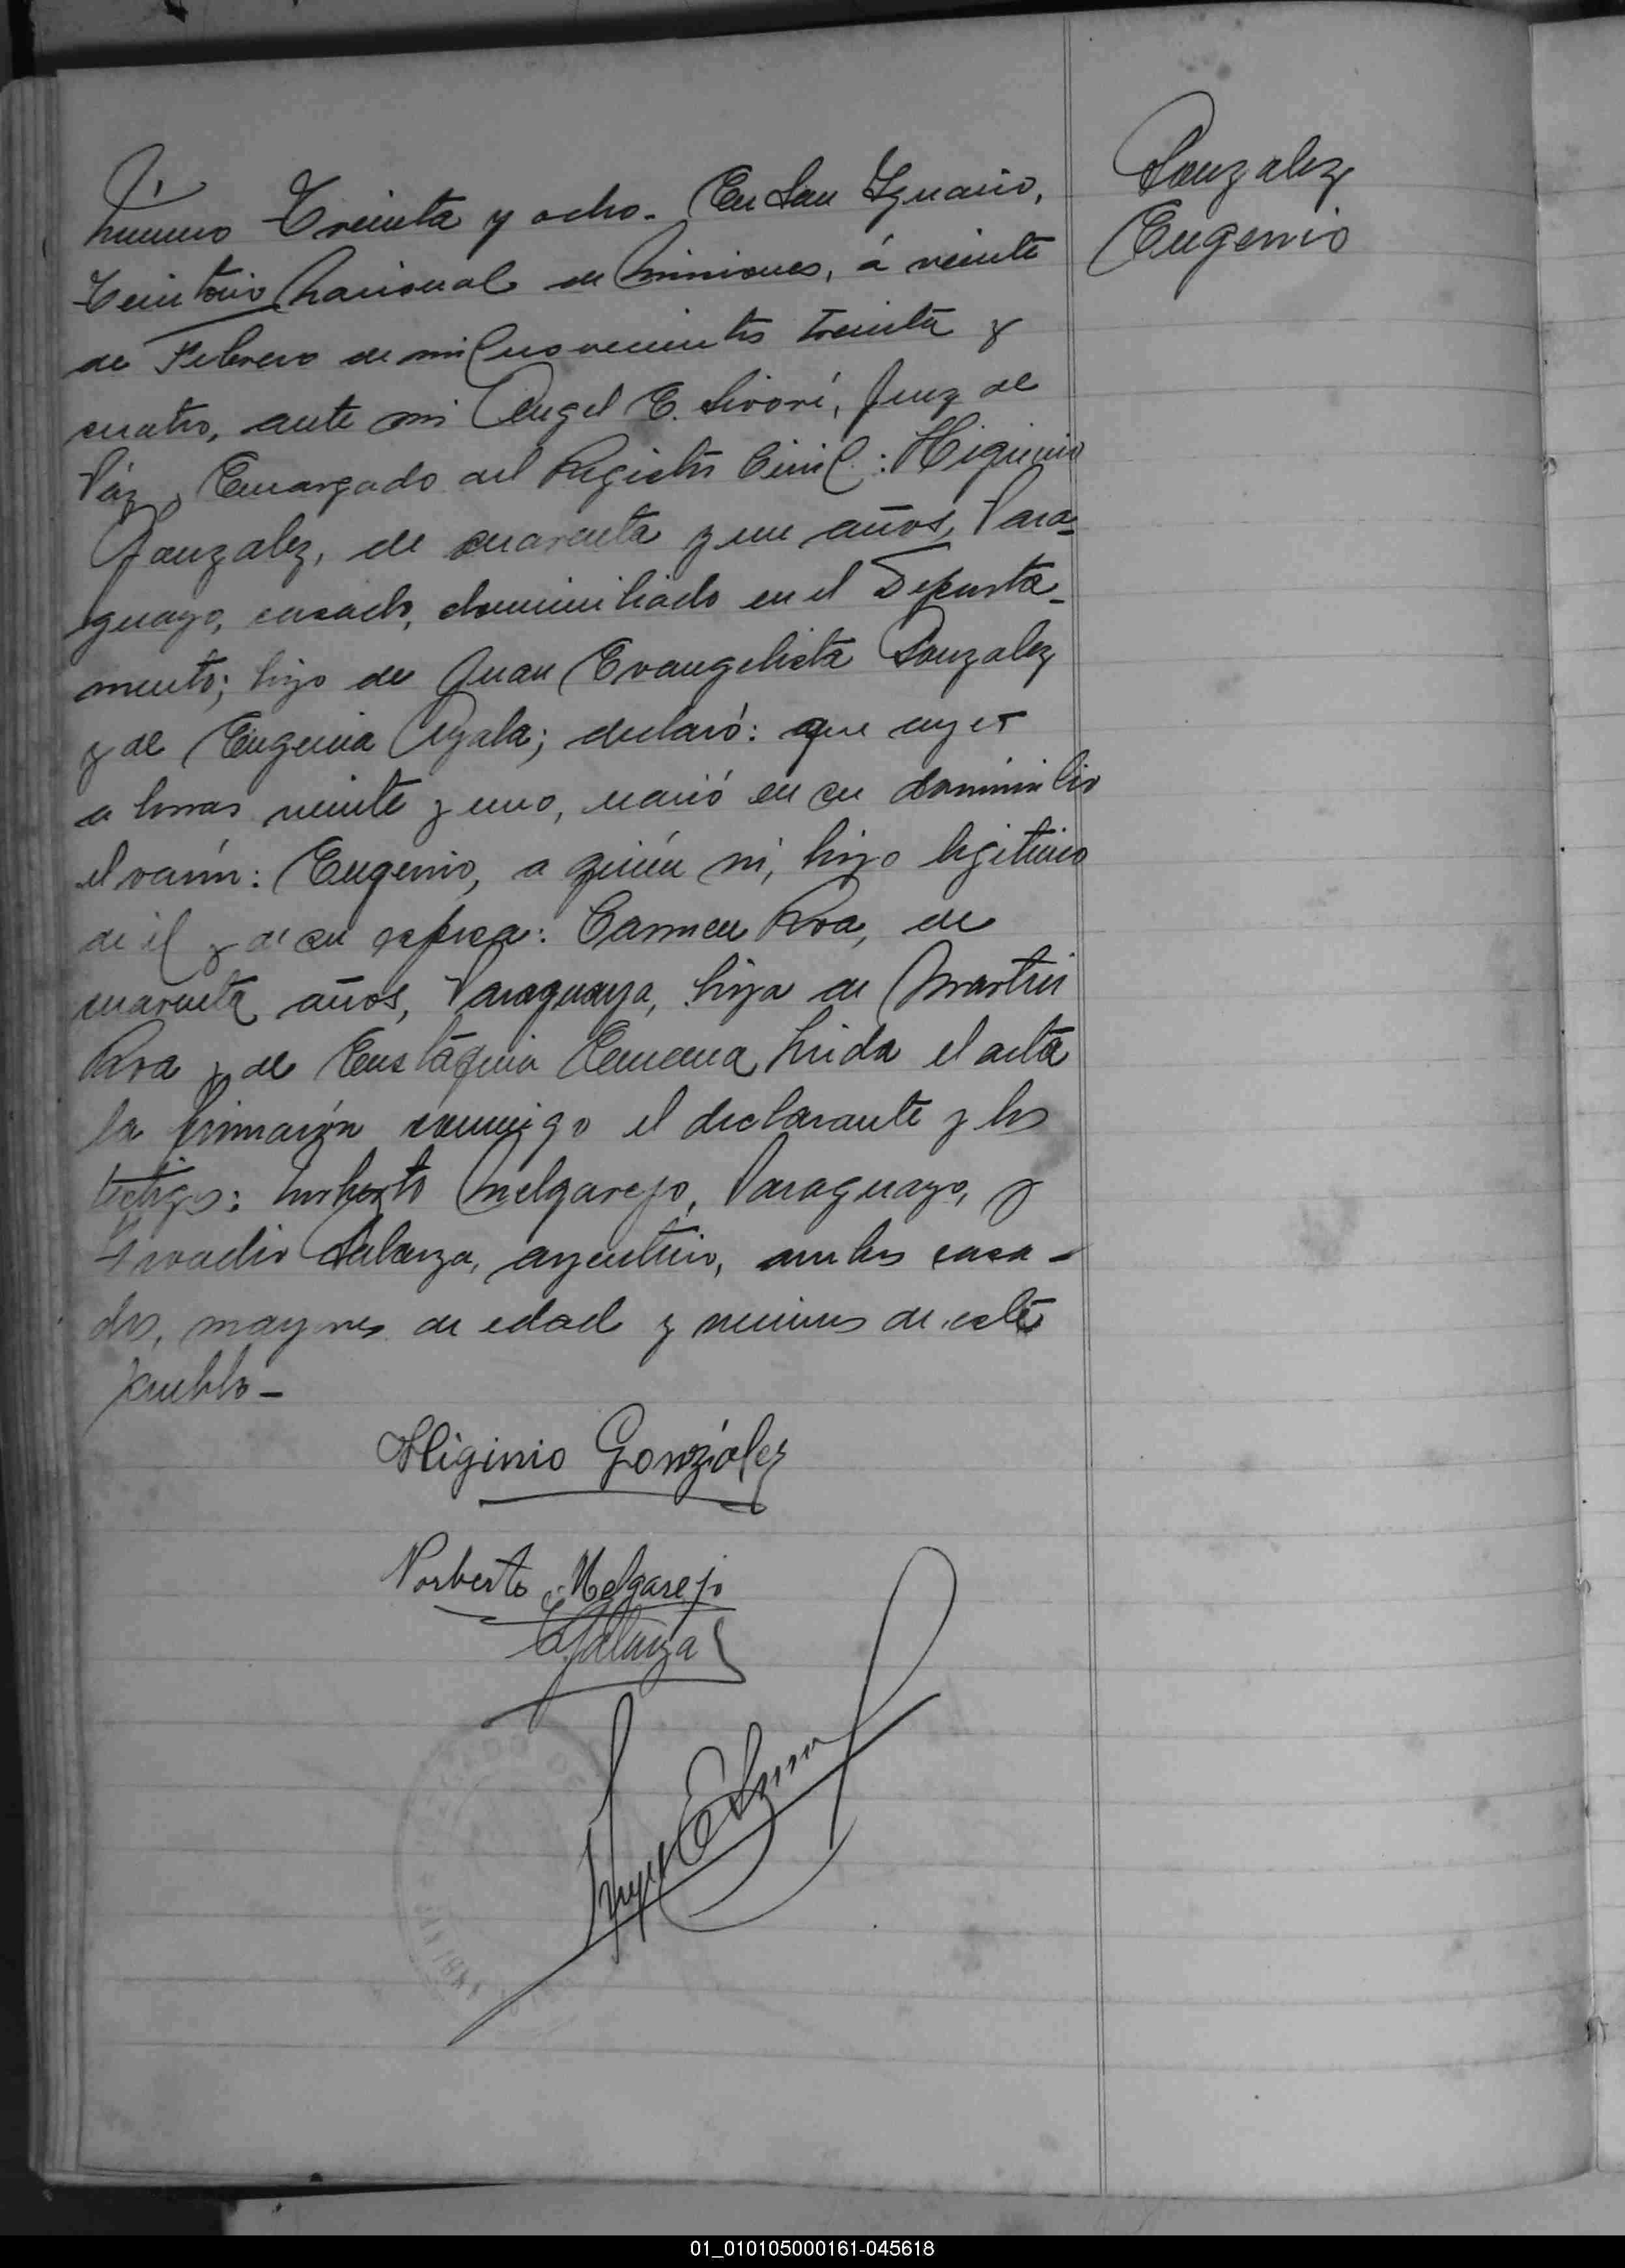 Número Treinta y ocho. En San Ignacio,
Territorio Nacional de Misiones, á veinte
de Febrero de mil novecientos treinta y
cuatro, ante mi Angel E. Sivori, Juez de
Páz y Encargado del Registro Civil: Higinio
Gonzalez, de cuarenta y un años, Para-
guayo, casado, domiciliado en el Departa-
mento; hijo de Juan Evangelista Gonzalez
y de Eugenia Ayala; declaró: que ayer
a horas veinte y uno, nació en su domicilio
el varón: Eugenio, a quién ví, hijo legitimo
de él y de su esposa: Carmen Roa, de
cuarenta años, Paraguaya, hija de Martin
Roa y de Eustaquia leida el acta
la firmarón conmigo el declarante y los
testigos: Norberto Melgarejo, Paraguayo, y
Galarza, argentino, ambos casa-
dos, mayores de edad y vecinos de este
pueblo-
Gonzalez
Eugenio
Higinio González
Norberto Melgarejo
E Galarza
01_010105000161-045618